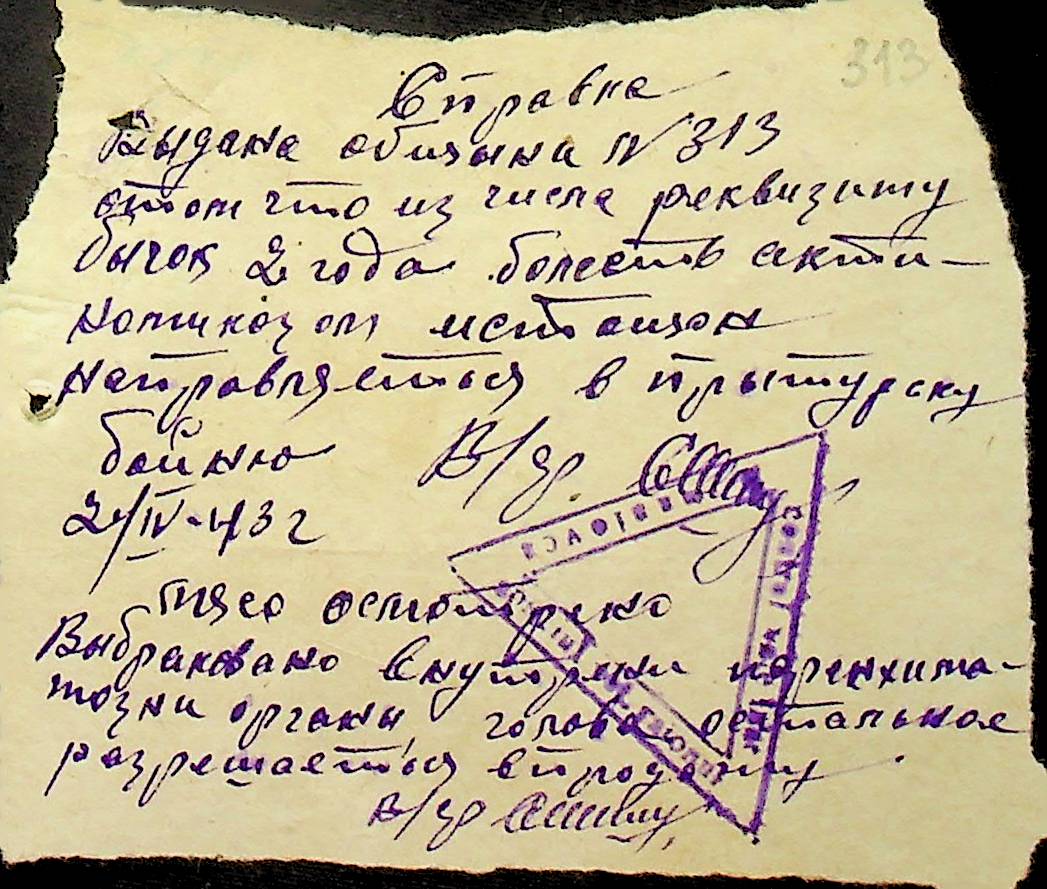 313
Справка
Выдана общына N 313
отом что из числа реквизиту
бычок 2 года болесть акти-
номикозом
направляется в
бойню В/вр
2/IV-43 г
мясо осмотрено
Выбраковано внутрени паренхима-
тозни органы, голова остальное
разрешается впродажу
В/вр